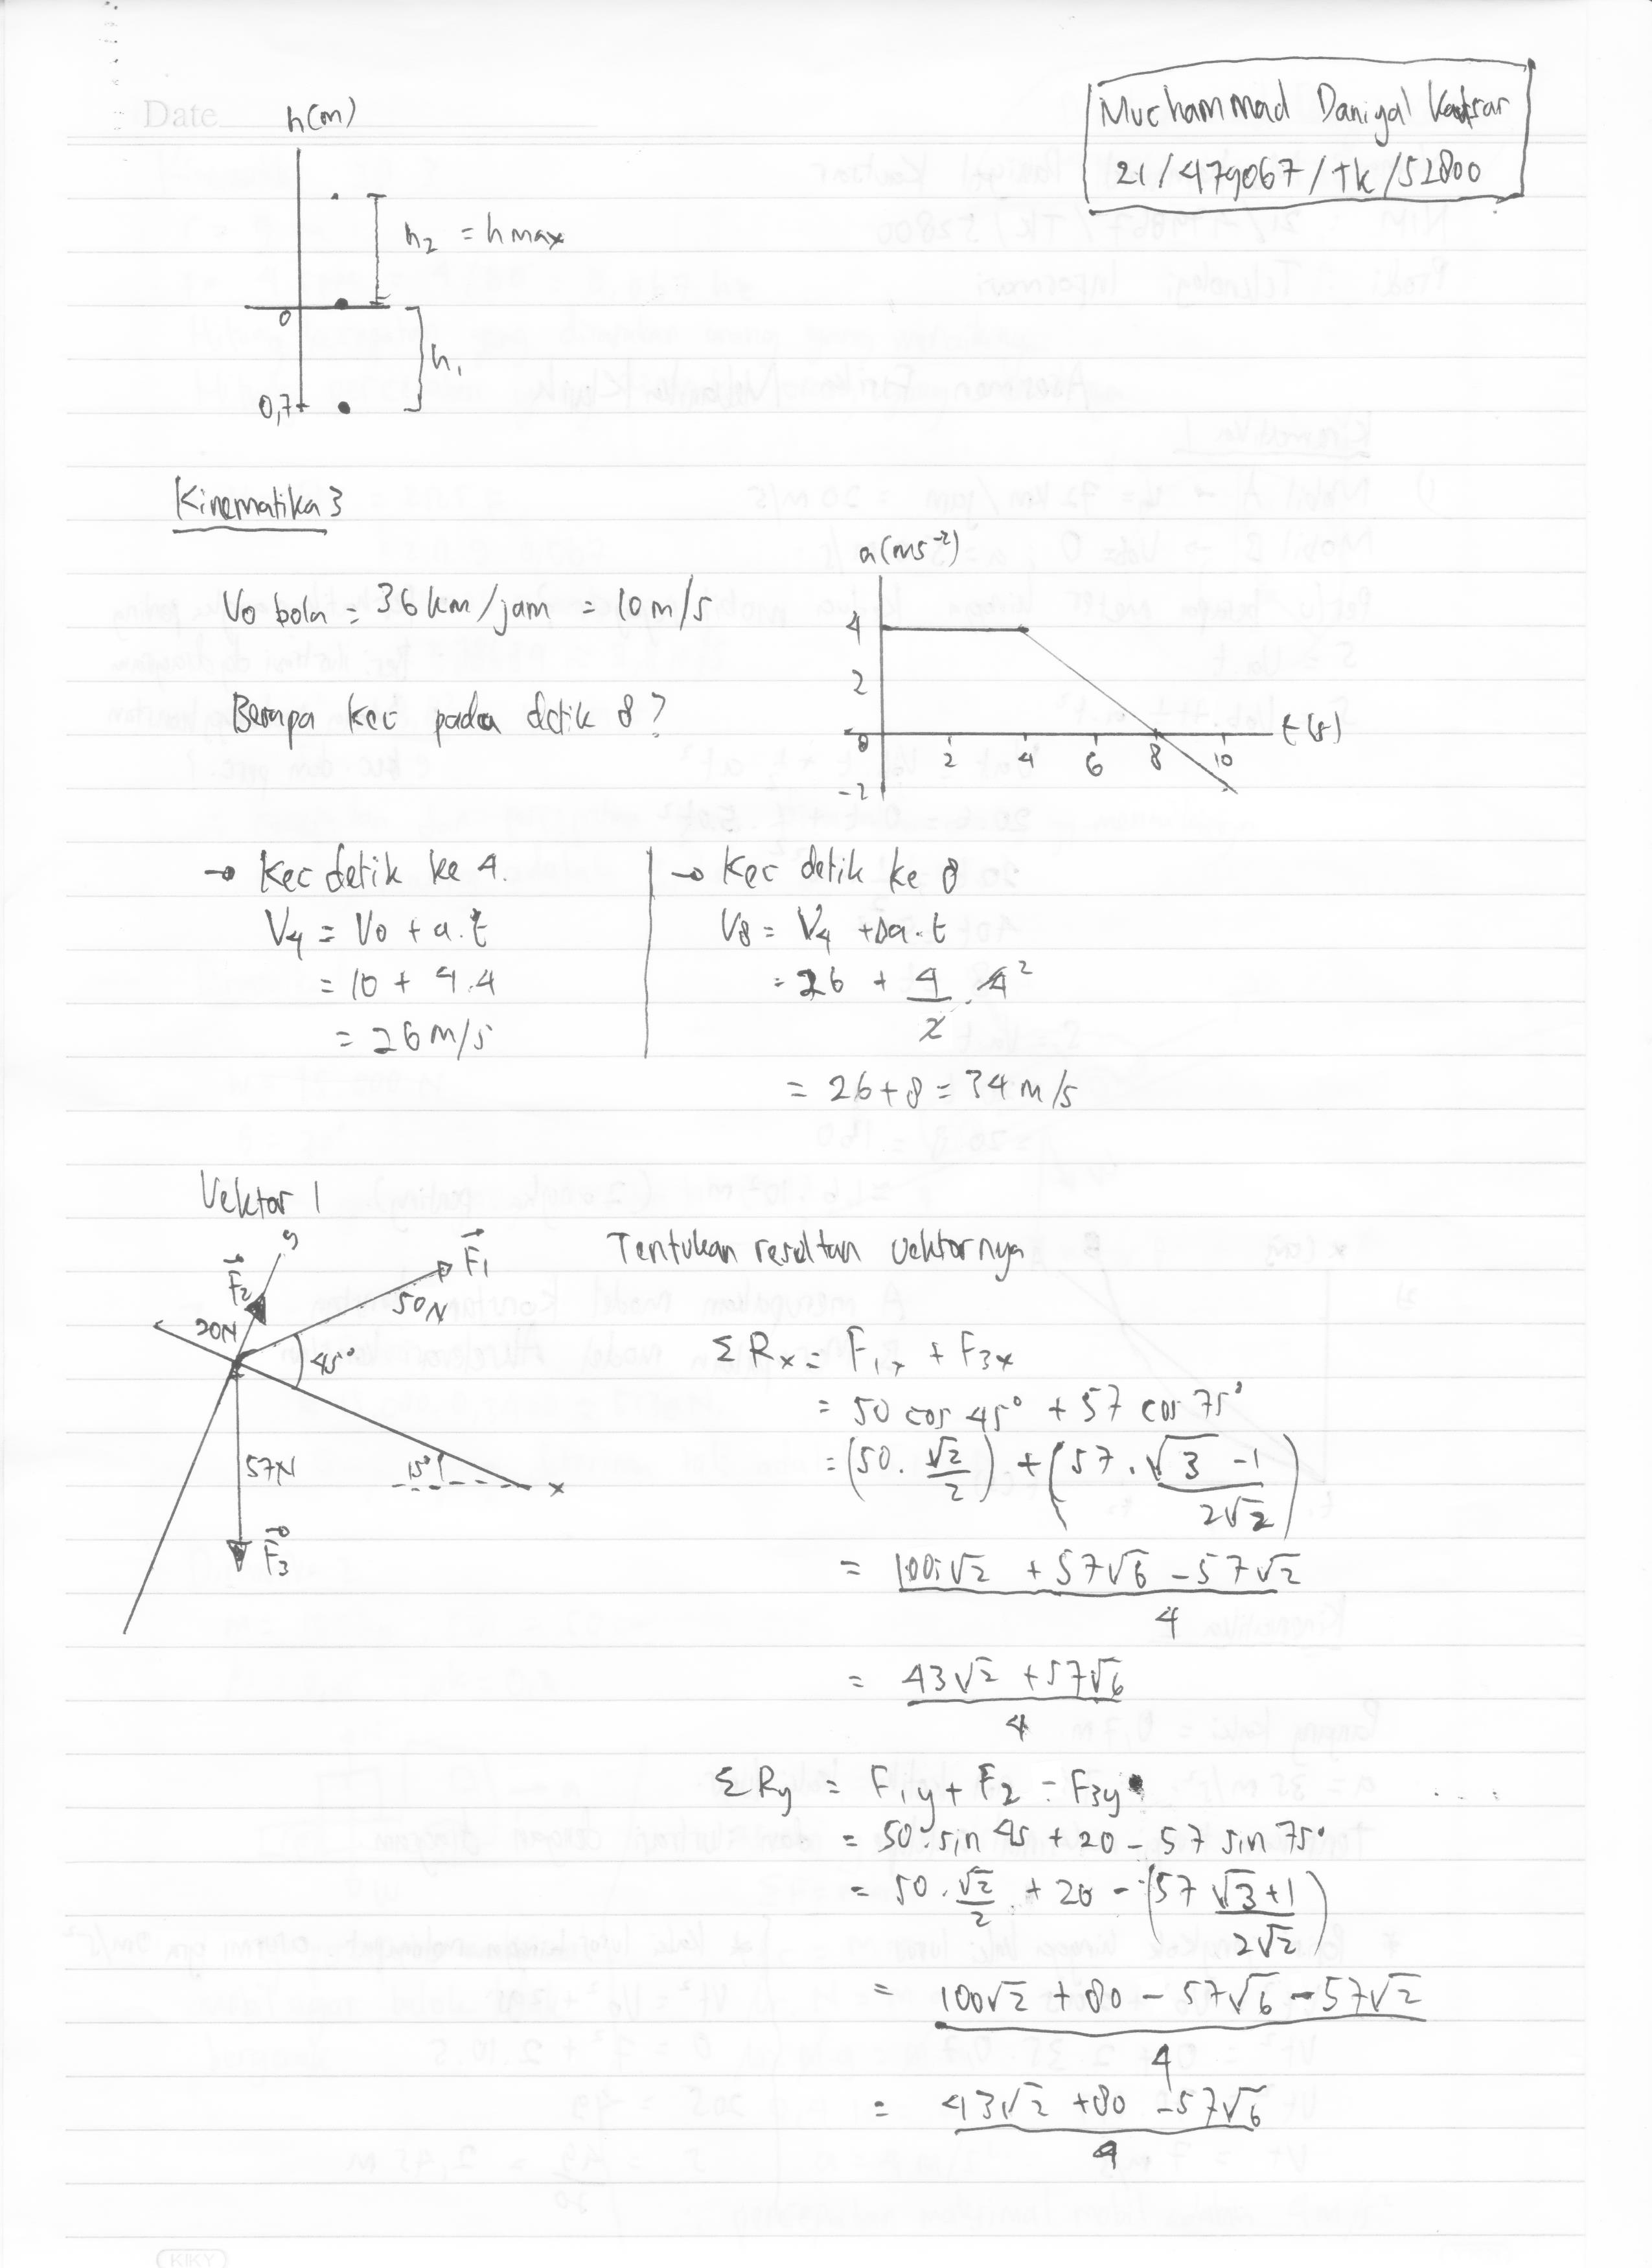 Date
Muchammad Daniyal Kautsar
21/479067/TK/52800
h(m)
h2 = h max
0
h1
0,7
Kinematika 3
Vo bola = 36 km/jam = 10 m/s
Berapa kec pada detik 8?
a(ms⁻²)
4
2
0
-2
2 4 6 8 10
t(s)
→ Kec detik ke 4.
V4 = Vo + a.t
= 10 + 4.4
= 26 m/s
→ Kec detik ke 8
V8 = V4 + Δa.t
= 26 + 4/2 . 4 2
= 26+8 = 34 m/s
Vektor 1
y
F1
F2
50N
20N
45°
57N
15°
x
F3
Tentukan resultan vektornya
ΣRx = F1x + F3x
= 50 cos 45° + 57 cos 75°
= (50 . √2/2) + (57 . √3 -1/2√2)
= 100√2 + 57√6 - 57√2/4
= 43√2 + 57√6/4
ΣRy = F1y + F2 - F3y
= 50 sin 45 + 20 - 57 sin 75°
= 50 . √2/2 + 20 - (57 √3+1/2√2)
= 100√2 + 80 - 57√6 - 57√2/4
= 43√2 + 80 - 57√6/4
KIKY